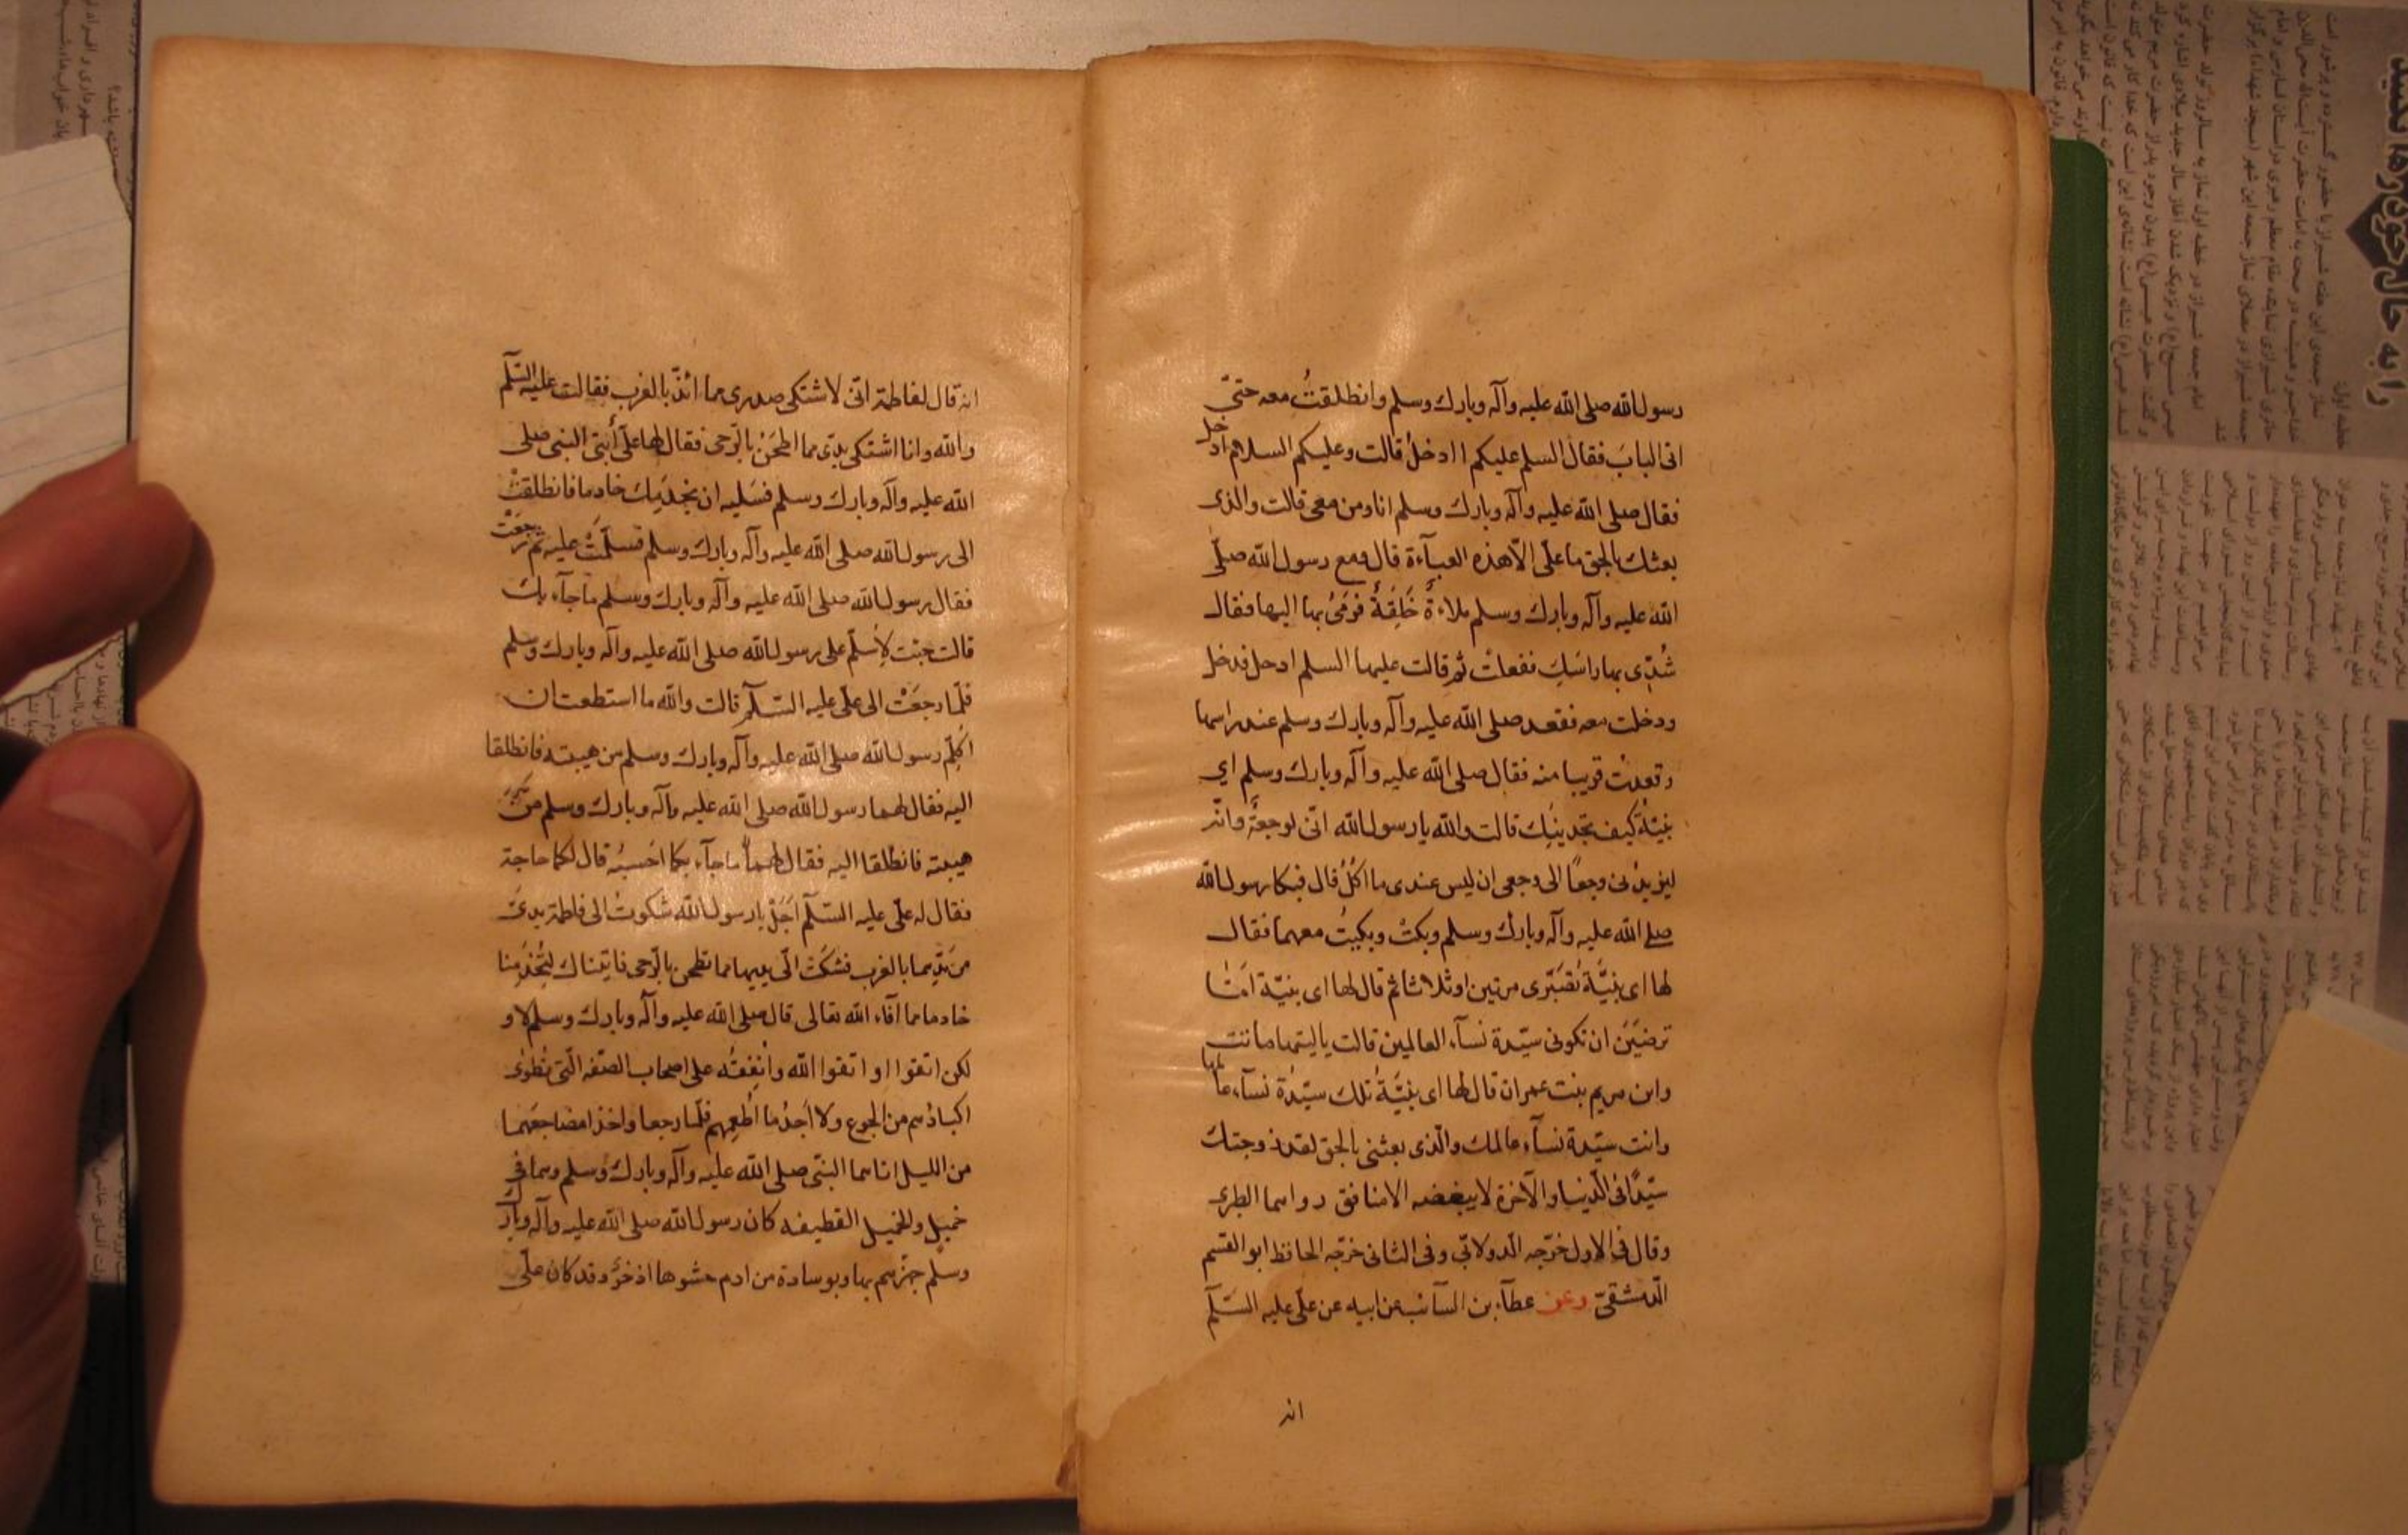 رسول الله صلى الله عليه وآله وبارك وسلم وانطلقتُ معه حتىّ
اتى البابَ فقال السلم عليكم اادخلُ قالت وعليكم السلام ادخل
فقال صلى الله عليه وآله وبارك وسلم انا ومن معى قالت والذى
بعثك بالحق ما علىّ الاّ هذه العبآءة قال ومع رسول الله صلىّ
الله عليه وآله وبارك وسلم ملاءةً خَلِقَةً فرَمىُ بها اليها فقال
شُدّى بها راسَكِ ففعلتْ ثم قالت عليها السلم ادخل فدخل
ودخلت معه فقعد صلى الله عليه وآله وبارك وسلم عند راسها
وقعدتُ قريبا منه فقال صلى الله عليه وآله وبارك وسلم اي
بنيّةُ كيف تجدينِك قالت والله يا رسول الله انّى لوجعةٌ وانّه
ليزيدُنى وجعًا الى وجعى ان ليس عندى ما آكلُ قال فبكا رسول الله
صلى الله عليه وآله وبارك وسلم وبكتْ وبكيتُ معهما فقال
لها اى بنيَّةُ تَصَبَّرى مرتين او ثلاثا ثم قال لها اى بنيّة امَا
ترضَيْنَ ان تكونى سيّدة نسآء العالمين قالت يا ليتها ماتت
واين مريم بنت عمران قال لها اى بنيَّةُ تلك سيّدةُ نسآء عالمها
وانت سيّدة نسآء عالمك والّذى بعثنى بالحق لقد زوجتك
سيّدًا فى الدنيا والآخرة لا يبغضه الا منافق رواهما الطبرى
وقال فى الاول خرّجه الدولابّى وفى الثانى خرّجه الحافظ ابو القسم
الدمشقىّ وعن عطآء بن السآئب عن ابيه عن علىّ عليه السَلّم
انه
انه قال لفاطمة انّى لاشتكى صدرى مما امُدّ بالغرب فقالت عليه السّلم
والله وانا اشتكى يدىّ مما اطحَنُ بالرّحى فقال لها علىّ أُيتى النبى صلى
الله عليه وآله وبارك وسلم فسَليه ان يخدِمك خادما فانطلقتْ
الى رسول الله صلى الله عليه وآله وبارك وسلم فسلّمَتْ عليه ثم رجعَتْ
فقال رسول الله صلى الله عليه وآله وبارك وسلم ما جآء بك
قالت جئت لأسلّم على رسول الله صلى الله عليه وآله وبارك وسلم
فلمّا رجعَتْ الى علىّ عليه السّلم قالت والله ما استطعت ان
اكلّم رسول الله صلى الله عليه وآله وبارك وسلم من هيبته فانطلقا
اليه فقال لهما رسول الله صلى الله عليه وآله وبارك وسلم من
هيبته فانطلقا اليه فقال لهما ما جآء بكما احسبُه قال لكما حاجة
فقال له علىّ عليه السّلم اجَلْ يا رسول الله شكوتُ الى فاطمة يدىّ
من مَدّهما بالغرب فشكتْ الىّ يديها مما تطحن بالرّحى فاتيناك لتُخدِمنا
خادما مما آفاء الله تعالى قال صلى الله عليه وآله وبارك وسلم لا و
لكن اتقوا او اتقوا الله وأُنفِقُه على اصحاب الصفّه الّتى تُطوٰى
اكبادُهم من الجوع ولا اجدُ ما اُطعِمهم فلمّا رجعا واخذا مضاجعَهما
من الليل اتاهما النبىّ صلى الله عليه وآله وبارك وسلم وهما فى
خميل والخميل القطيفه كان رسول الله صلى الله عليه وآله وبارك
وسلم جهّزهم بها وبوسادة من ادم حشوها اذخرٌ وقد كان علىّ